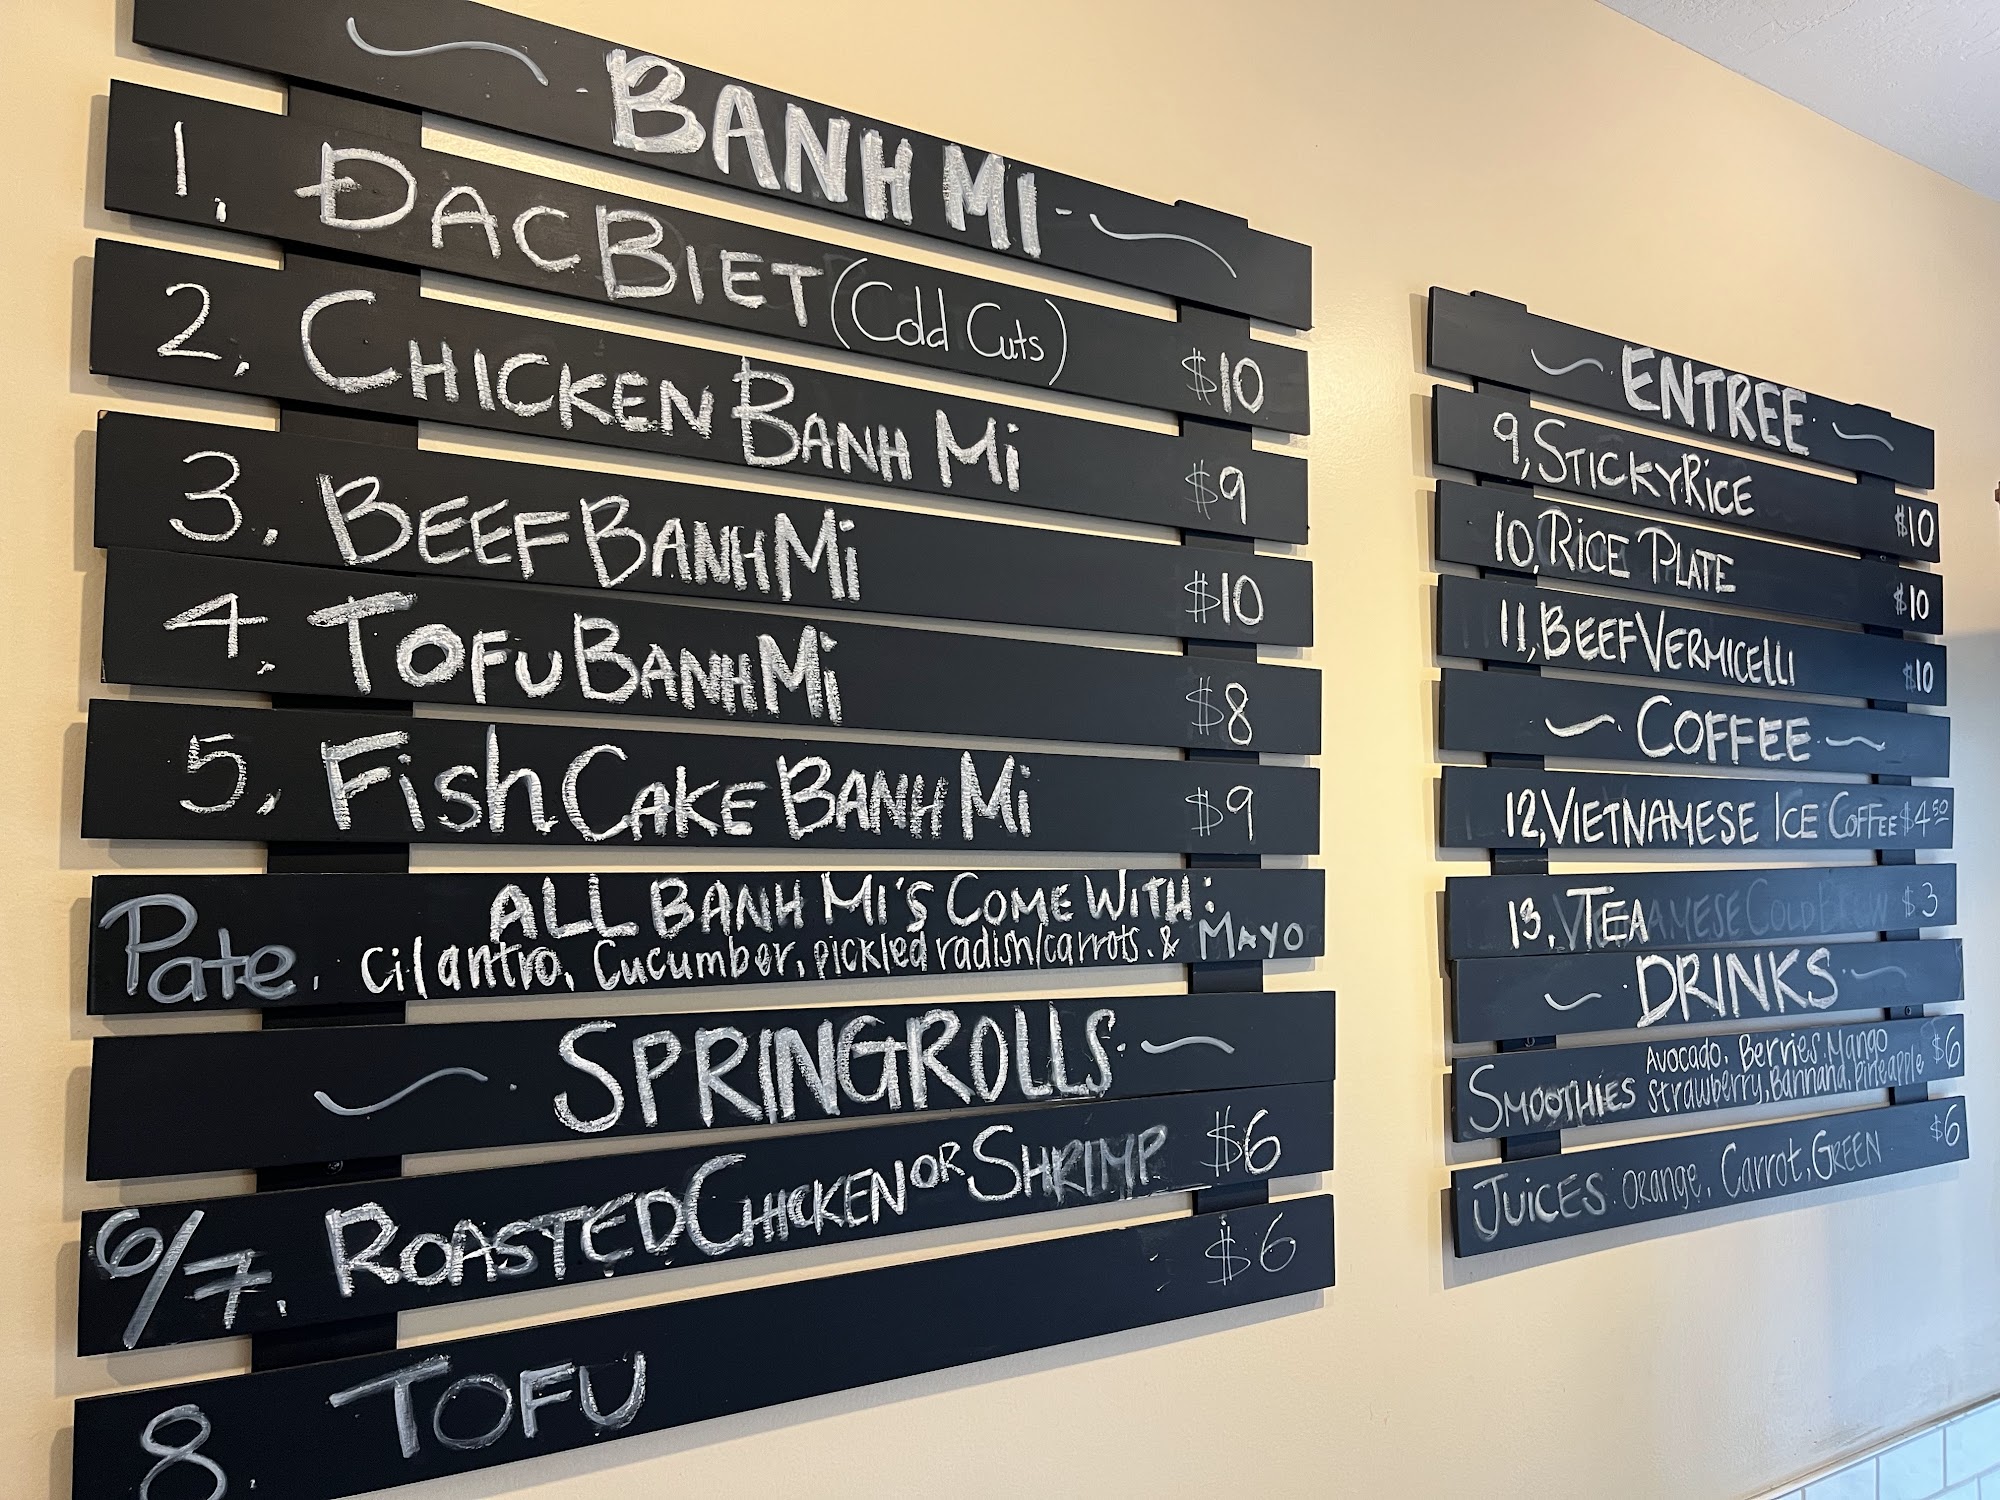 ~ BANH MI ~
1. ĐAC BIET (Cold Cuts) $10
2. CHICKEN BANH Mi $9
3. BEEF BANH Mi $10
4. TOFU BANH Mi $8
5. Fish CAKE BANH Mi $9
ALL BANH Mi'S COME WITH:
Pate. Cilantro, Cucumber, pickled radish/carrots. & MAYO
~ SPRINGROLLS ~
6/7. ROASTED CHICKEN OR SHRIMP $6
8. TOFU $6
~ ENTREE ~
9, STICKY RiCE $10
10, RiCE PLATE $10
11, BEEF VERMICELLI $10
~ COFFEE ~
12, VIETNAMESE ICE COFFEE $4.50
13. TEA $3
~ DRINKS ~
SMOOTHIES Avocado. Berries. Mango
Strawberry, Bannana, pineapple $6
JuiCES: orange, Carrot, GREEN $6